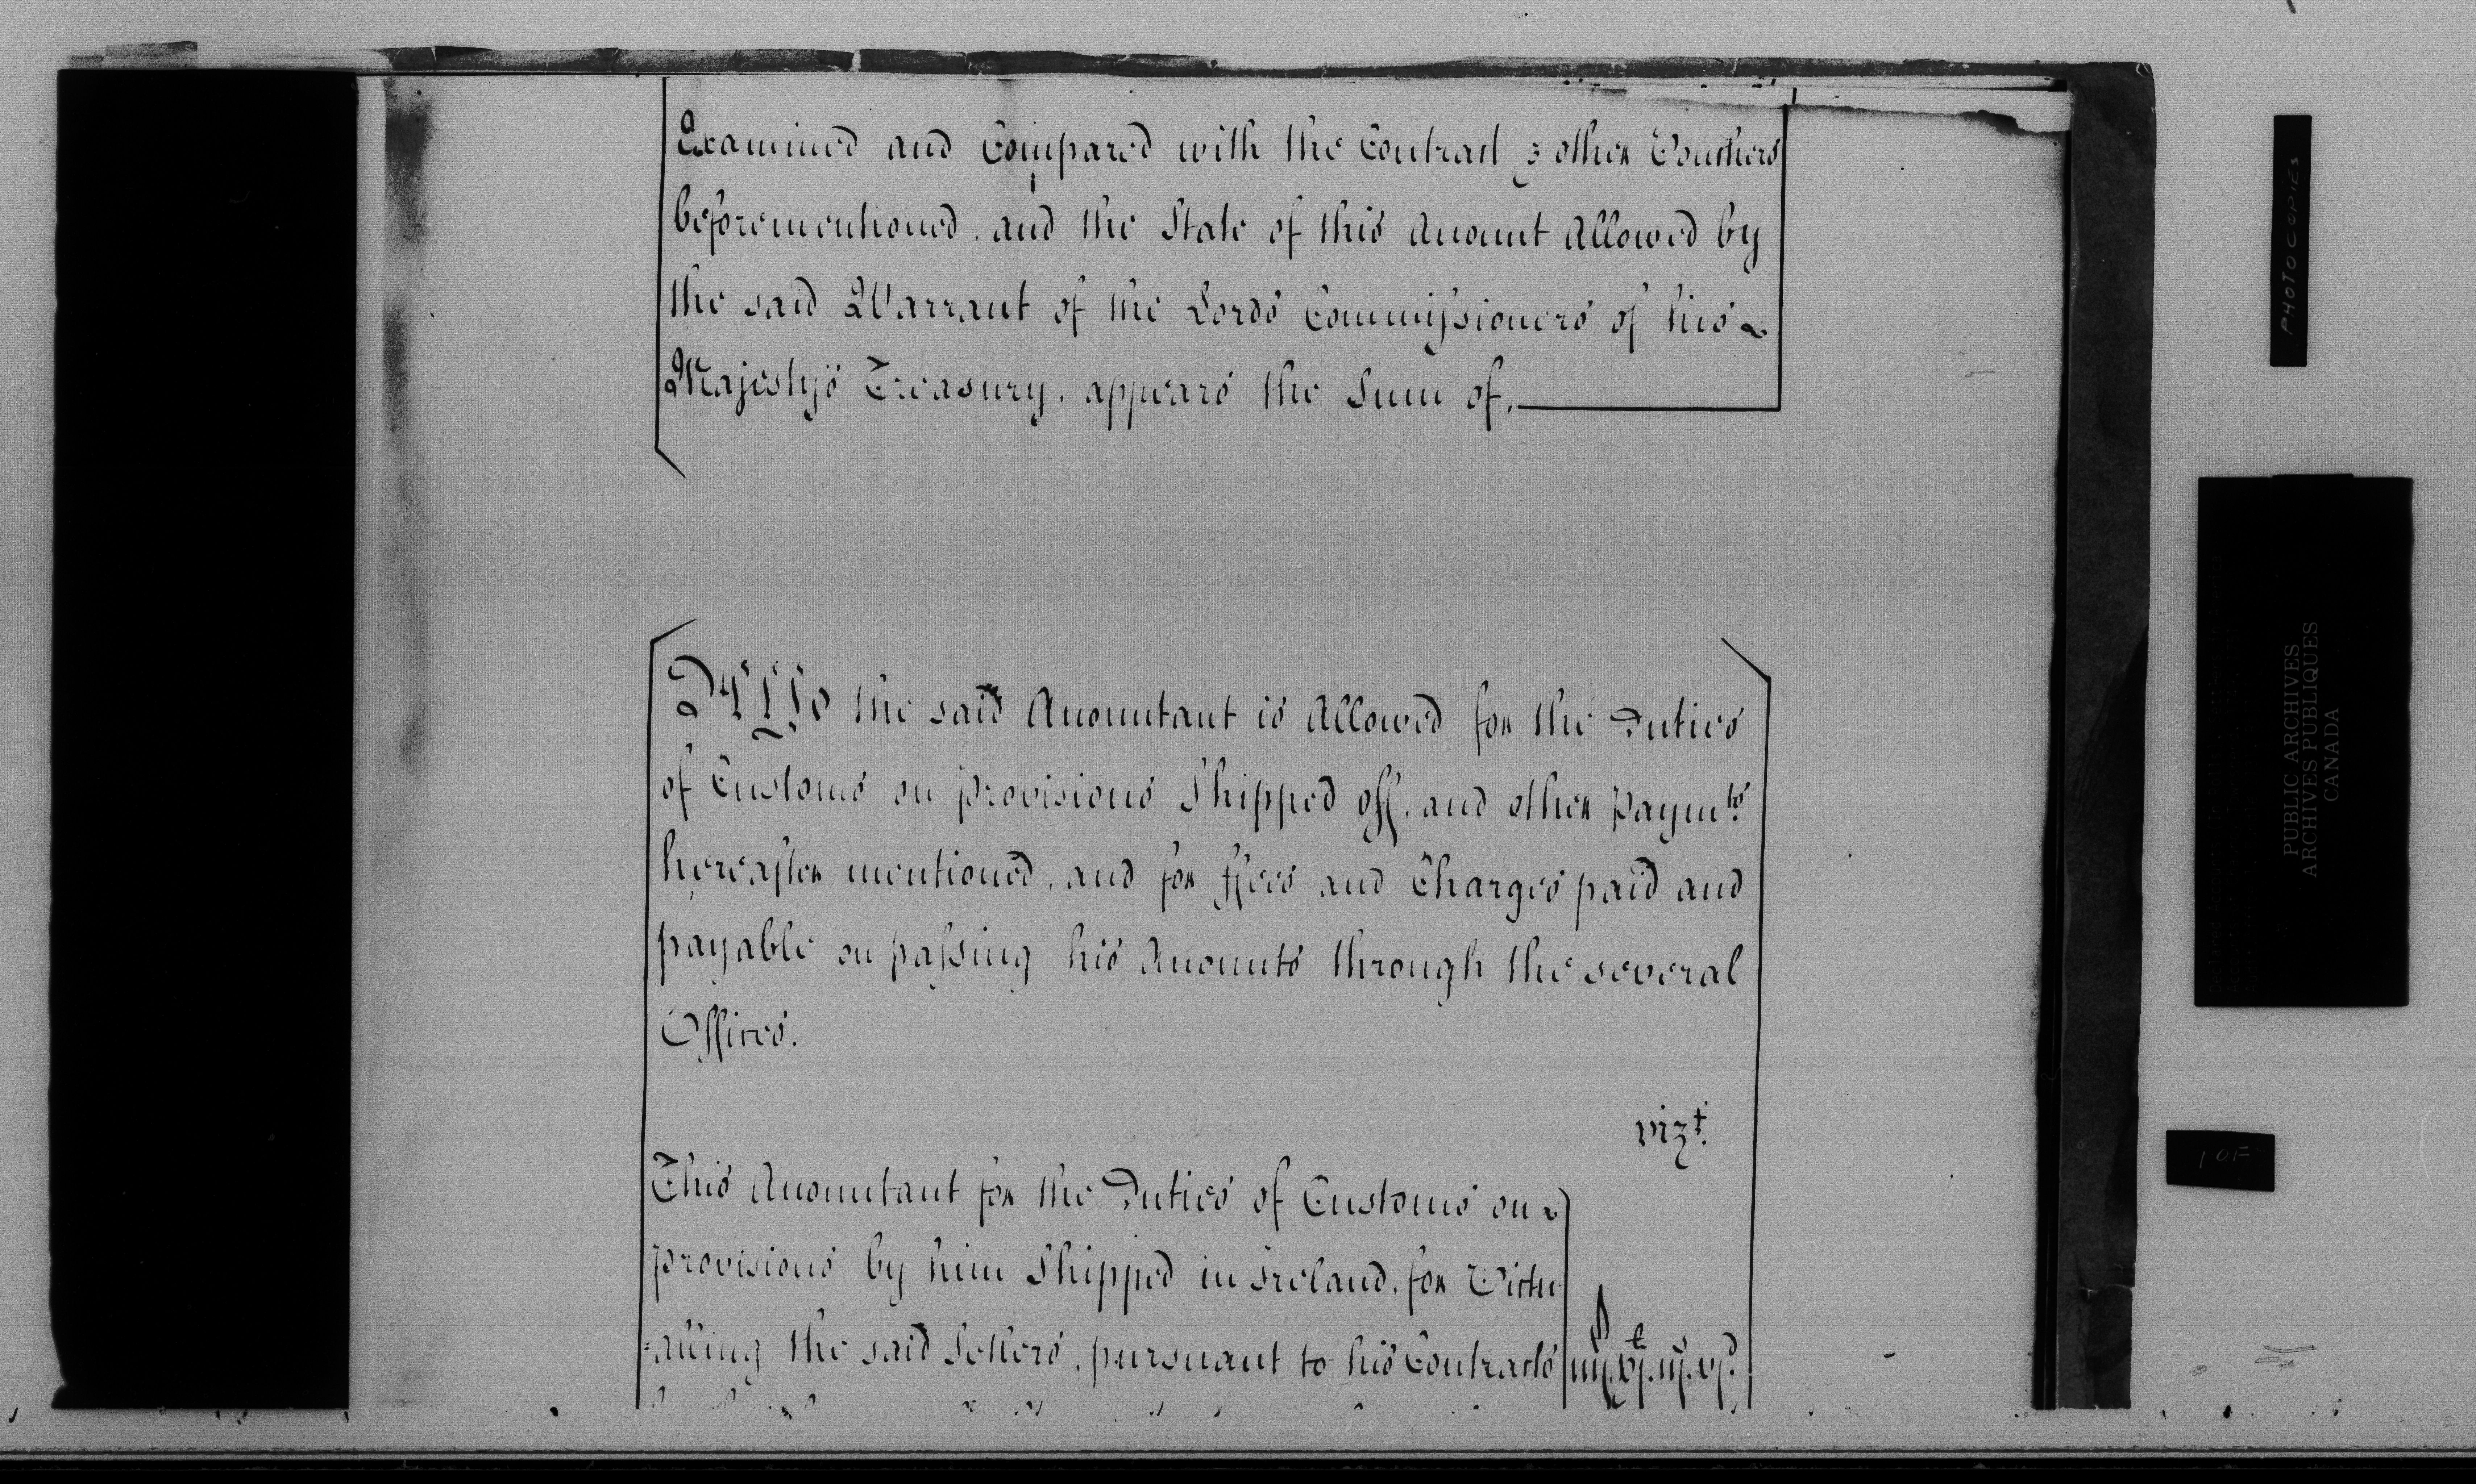 Examined and Compared with the Contract & other Vouchers
beforementioned, and the State of this Account allowed by
the said Warrant of the Lords Commissioners of his
Majesty's Treasury, appears the Sum of,
Also the said Accountant is allowed for the Duties
of Customs on provisions Shipped off, and other paymts.
hereafter mentioned, and for ffees and Charges paid and
payable on passing his Accounts through the several
Offices.
vizt.
This Accountant for the Duties of Customs on
provisions by him Shipped in Ireland, for Victu-
-alling the said Settlers, pursuant to his Contracts
PHOTOCOPIES
PUBLIC ARCHIVES
ARCHIVES PUBLIQUES
CANADA